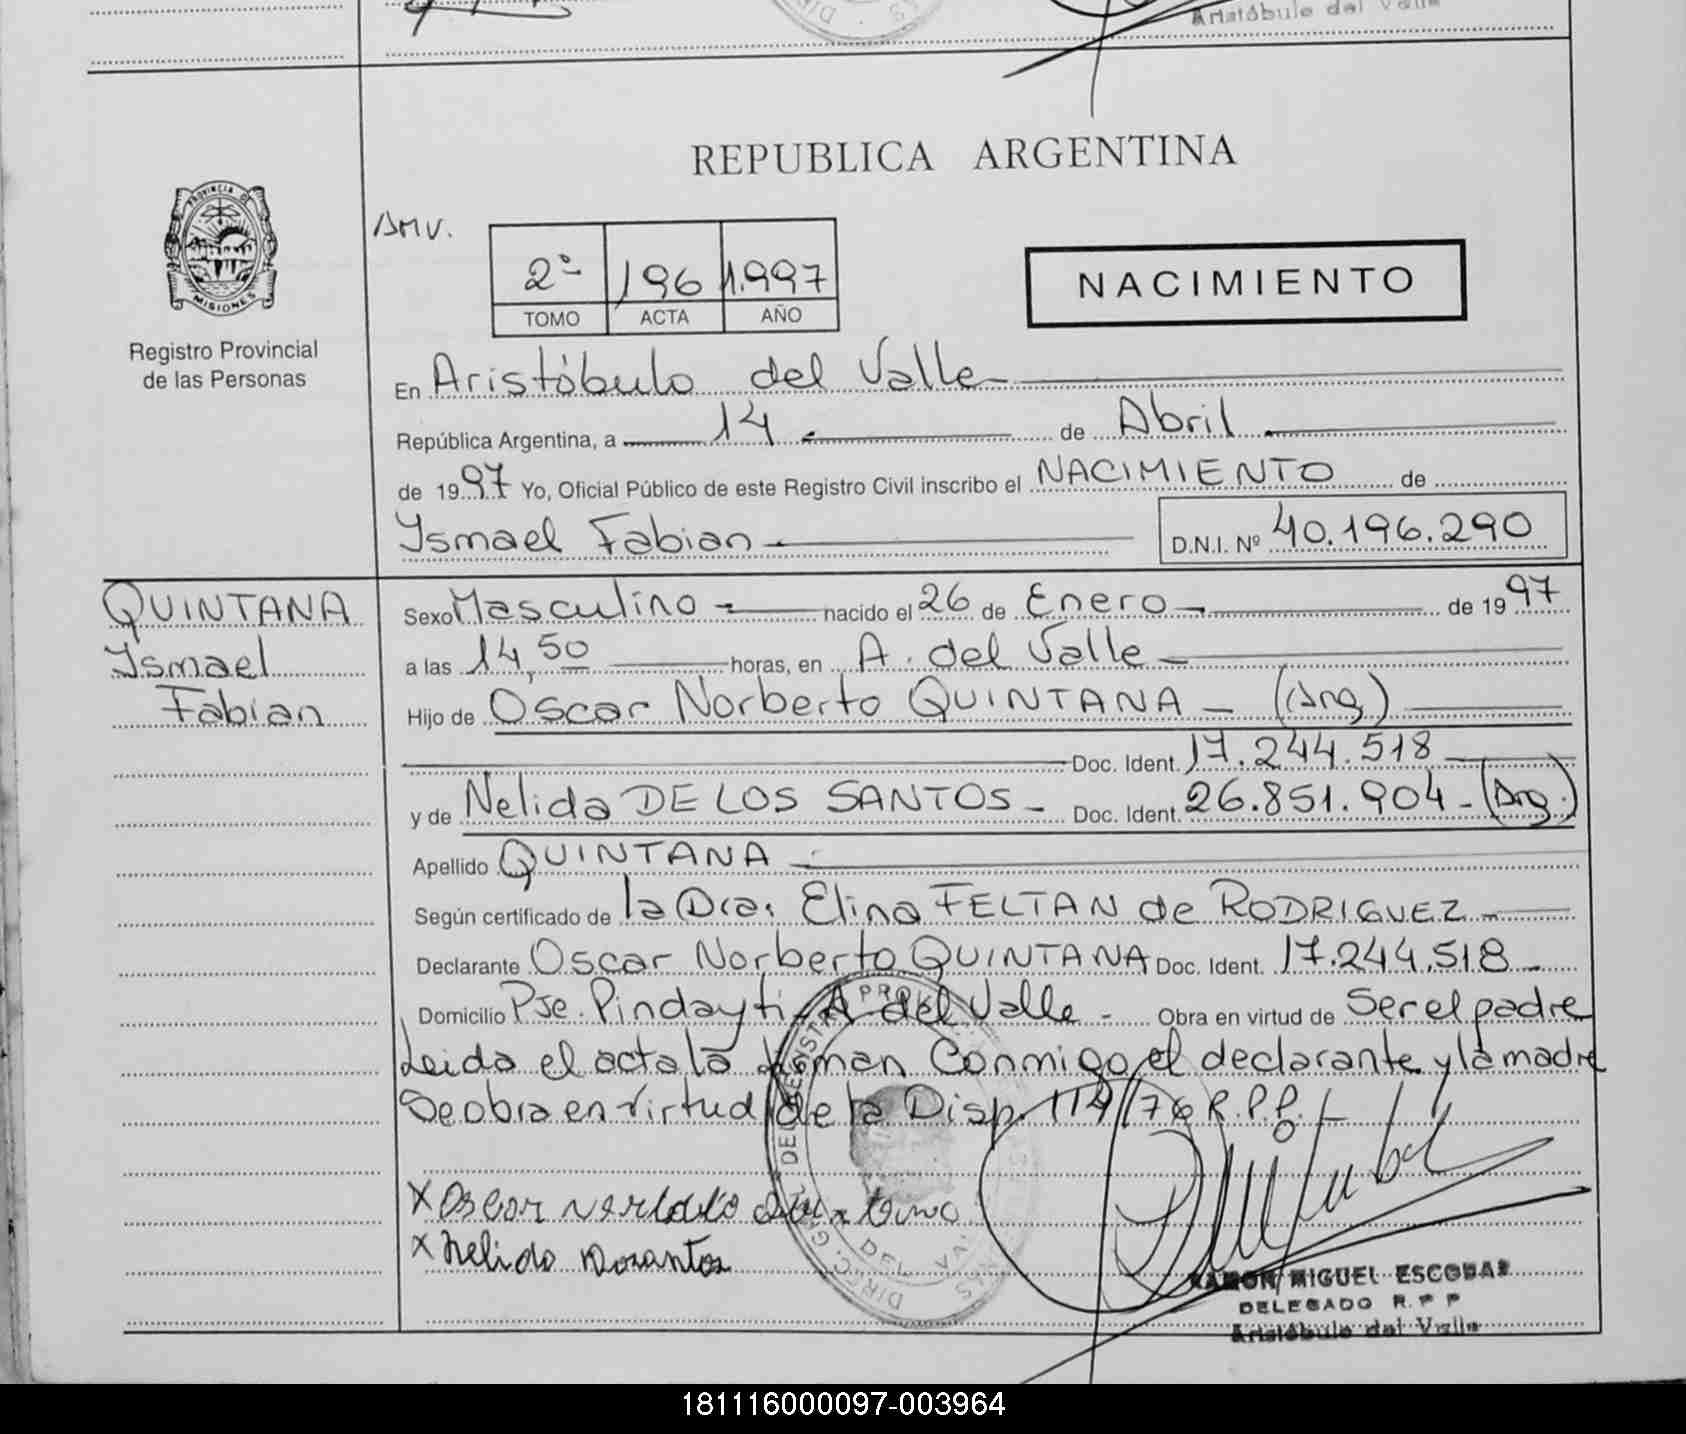 Aristóbulo del Valle
REPUBLICA ARGENTINA
PROVINCIA DE
MISIONES
Registro Provincial
de las Personas
2º 196 1.997
TOMO ACTA AÑO
NACIMIENTO
En Aristóbulo del Valle
República Argentina, a 14 de Abril
de 1997 Yo, Oficial Público de este Registro Civil inscribo el NACIMIENTO de
Ysmael Fabian D.N.I. Nº 40.196.290
QUINTANA
Ysmael
Fabian
Sexo Masculino nacido el 26 de Enero de 1997
a las 14,50 horas, en A. del Valle
Hijo de Oscar Norberto QUINTANA (Arg)
Doc. Ident. 17.244.518
y de Nelida DE LOS SANTOS Doc. Ident. 26.851.904 (Arg.)
Apellido QUINTANA
Según certificado de la Dra. Elina FELTAN de RODRIGUEZ
Declarante Oscar Norberto QUINTANA Doc. Ident. 17.244.518
Domicilio Pje. Pindayti A del Valle Obra en virtud de Ser el padre
Leida el acta la firman Conmigo el declarante y la madre
Se obra en virtud de la Disp. 114/76 R.P.P.
X Oscar
X Nelida Dosantos
RAMON MIGUEL ESCOBAR
DELEGADO R.P.P
Aristóbulo del Valle
181116000097-003964